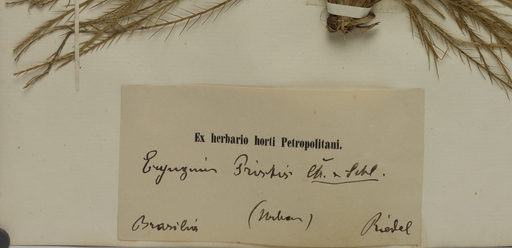 Ex herbario horti Petropolitani.
Eryngium Pristis Ch. & Schl.
(Urban)
Brasilia Riedel